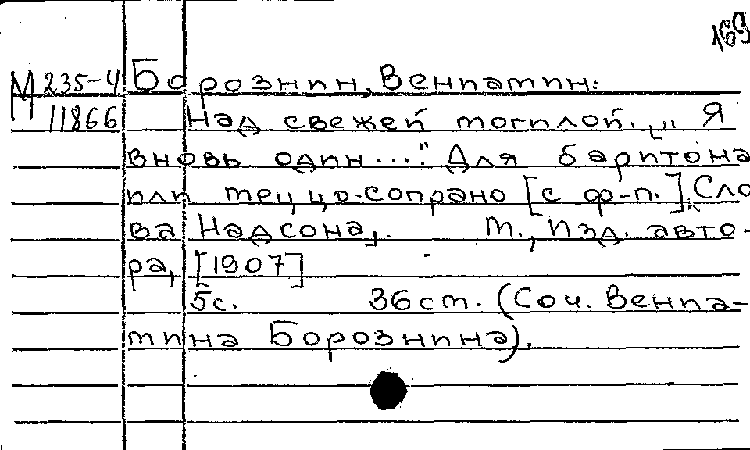 169
М 235-4 Борознин, Вениамин.
11866 Над свежей могилой. "Я
вновь один ...". Для баритона
или меццо-сопрано [с ф-п.]. Сло
ва Надсона. М., изд. авто-
ра, [1907]
5с. 36см. (Соч. Вениа-
мина Борознина).